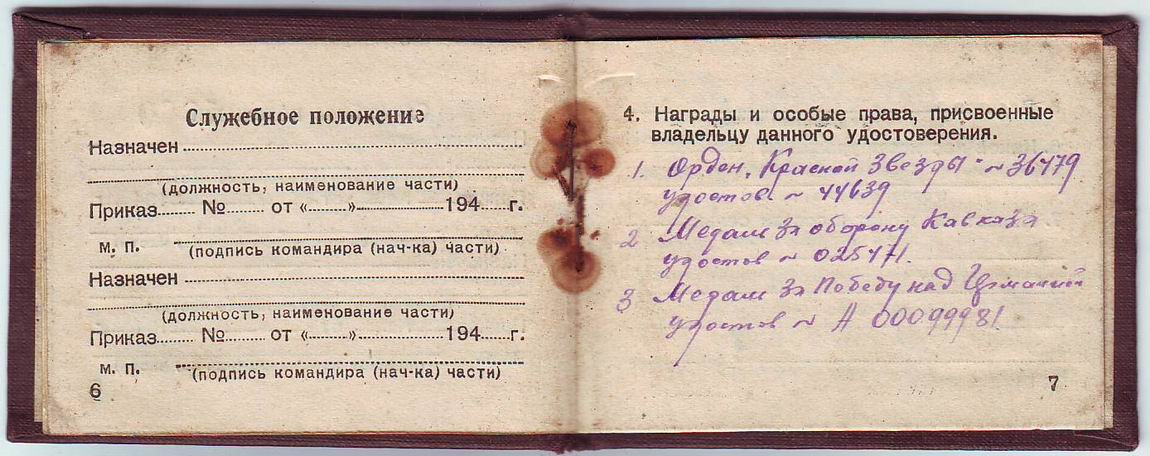 Служебное положение
Назначен
(должность, наименование части)
Приказ...... № ...... от «......» ............ 194.....г.
м. п.
(подпись командира (нач-ка) части)
Назначен
(должность, наименование части)
Приказ...... № ...... от «......» ............ 194.....г.
м. п.
(подпись командира (нач-ка) части)
6
4. Награды и особые права, присвоенные
владельцу данного удостоверения.
1. Орден, Красной Звезды - № 36479
удостов. № 44639
2 Медаль За оборону Кавказа
удостов № 025471.
3 Медаль За Победу над Германией
удостов № А 00099981
7